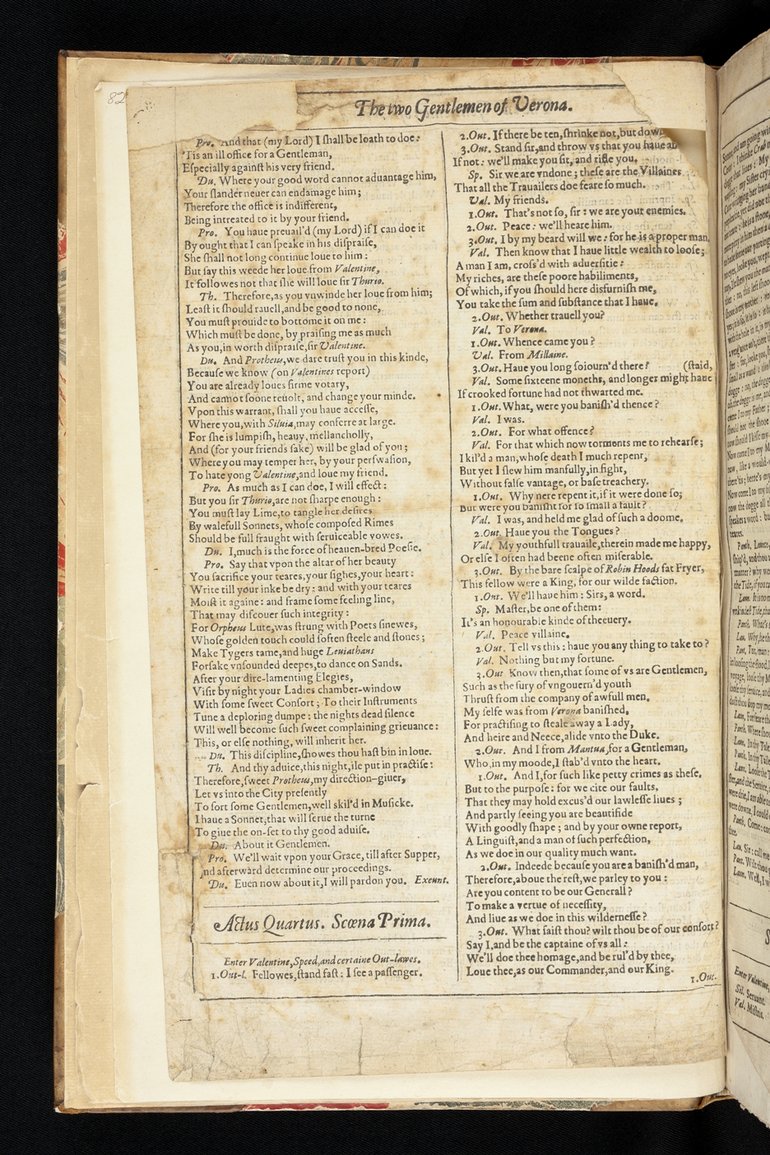 82
The two Gentlemen of Verona.
Pro. And that (my Lord) I ſhall be loath to doe:
'Tis an ill office for a Gentleman,
Eſpecially againſt his very friend.
Du. Where your good word cannot aduantage him,
Your ſlander neuer can endamage him;
Therefore the office is indifferent,
Being intreated to it by your friend.
Pro. You haue preuail'd (my Lord) if I can doe it
By ought that I can ſpeake in his diſpraiſe,
She ſhall not long continue loue to him:
But ſay this weede her loue from Valentine,
It followes not that ſhe will loue ſir Thurio.
Th. Therefore, as you vnwinde her loue from him;
Leaſt it ſhould rauell, and be good to none,
You muſt prouide to bottome it on me:
Which muſt be done, by praiſing me as much
As you, in worth diſpraiſe, ſir Valentine.
Du. And Protheus, we dare truſt you in this kinde,
Becauſe we know (on Valentines report)
You are already loues firme votary,
And cannot ſoone reuolt, and change your minde.
Vpon this warrant, ſhall you haue acceſſe,
Where you, with Siluia, may conferre at large.
For ſhe is lumpiſh, heauy, mellancholly,
And (for your friends ſake) will be glad of you;
Where you may temper her, by your perſwaſion,
To hate yong Valentine, and loue my friend.
Pro. As much as I can doe, I will effect:
But you ſir Thurio, are not ſharpe enough:
You muſt lay Lime, to tangle her deſires
By walefull Sonnets, whoſe compoſed Rimes
Should be full fraught with ſeruiceable vowes.
Du. I, much is the force of heauen-bred Poeſie.
Pro. Say that vpon the altar of her beauty
You ſacrifice your teares, your ſighes, your heart:
Write till your inke be dry: and with your teares
Moiſt it againe: and frame ſome feeling line,
That may diſcouer ſuch integrity:
For Orpheus Lute, was ſtrung with Poets ſinewes,
Whoſe golden touch could ſoften ſteele and ſtones;
Make Tygers tame, and huge Leuiathans
Forſake vnſounded deepes, to dance on Sands.
After your dire-lamenting Elegies,
Viſit by night your Ladies chamber-window
With ſome ſweet Conſort; To their Inſtruments
Tune a deploring dumpe: the nights dead ſilence
Will well become ſuch ſweet complaining grieuance:
This, or elſe nothing, will inherit her.
Du. This diſcipline, ſhowes thou haſt bin in loue.
Th. And thy aduice, this night, ile put in practiſe:
Therefore, ſweet Protheus, my direction-giuer,
Let vs into the City preſently
To ſort ſome Gentlemen, well skil'd in Muſicke.
I haue a Sonnet, that will ſerue the turne
To giue the on-ſet to thy good aduiſe.
Du. About it Gentlemen.
Pro. We'll wait vpon your Grace, till after Supper,
nd afterward determine our proceedings.
Du. Euen now about it, I will pardon you. Exeunt.
Actus Quartus. Scœna Prima.
Enter Valentine, Speed, and certaine Out-lawes.
1.Out-l. Fellowes, ſtand faſt: I ſee a paſſenger.
2.Out. If there be ten, ſhrinke not, but down
3.Out. Stand ſir, and throw vs that you haue ab
If not: we'll make you ſit, and rifle you.
Sp. Sir we are vndone; theſe are the Villaines
That all the Trauailers doe feare ſo much.
Val. My friends.
1.Out. That's not ſo, ſir: we are your enemies.
2.Out. Peace: we'll heare him.
3.Out. I by my beard will we: for he is a proper man.
Val. Then know that I haue little wealth to looſe;
A man I am, croſs'd with aduerſitie:
My riches, are theſe poore habiliments,
Of which, if you ſhould here disfurniſh me,
You take the ſum and ſubſtance that I haue.
2.Out. Whether trauell you?
Val. To Verona.
1.Out. Whence came you?
Val. From Millaine.
3.Out. Haue you long ſoiourn'd there? (ſtaid,
Val. Some ſixteene moneths, and longer might haue
If crooked fortune had not thwarted me.
1.Out. What, were you baniſh'd thence?
Val. I was.
2.Out. For what offence?
Val. For that which now torments me to rehearſe;
I kil'd a man, whoſe death I much repent,
But yet I ſlew him manfully, in fight,
Without falſe vantage, or baſe treachery.
1.Out. Why nere repent it, if it were done ſo;
But were you baniſht for ſo ſmall a fault?
Val. I was, and held me glad of ſuch a doome.
2.Out. Haue you the Tongues?
Val. My youthfull trauaile, therein made me happy,
Or elſe I often had beene often miſerable.
3.Out. By the bare ſcalpe of Robin Hoods fat Fryer,
This fellow were a King, for our wilde faction.
1.Out. We'll haue him: Sirs, a word.
Sp. Maſter, be one of them:
It's an honourable kinde of theeuery.
Val. Peace villaine.
2.Out. Tell vs this: haue you any thing to take to?
Val. Nothing but my fortune.
3.Out. Know then, that ſome of vs are Gentlemen,
Such as the fury of vngouern'd youth
Thruſt from the company of awfull men.
My ſelfe was from Verona baniſhed,
For practiſing to ſteale away a Lady,
And heire and Neece, alide vnto the Duke.
2.Out. And I from Mantua, for a Gentleman,
Who, in my moode, I ſtab'd vnto the heart.
1.Out. And I, for ſuch like petty crimes as theſe.
But to the purpoſe: for we cite our faults,
That they may hold excus'd our lawleſſe liues;
And partly ſeeing you are beautifide
With goodly ſhape; and by your owne report,
A Linguiſt, and a man of ſuch perfection,
As we doe in our quality much want.
2.Out. Indeede becauſe you are a baniſh'd man,
Therefore, aboue the reſt, we parley to you:
Are you content to be our Generall?
To make a vertue of neceſſity,
And liue as we doe in this wilderneſſe?
3.Out. What ſaiſt thou? wilt thou be of our conſort?
Say I, and be the captaine of vs all:
We'll doe thee homage, and be rul'd by thee,
Loue thee, as our Commander, and our King.
1.Out.